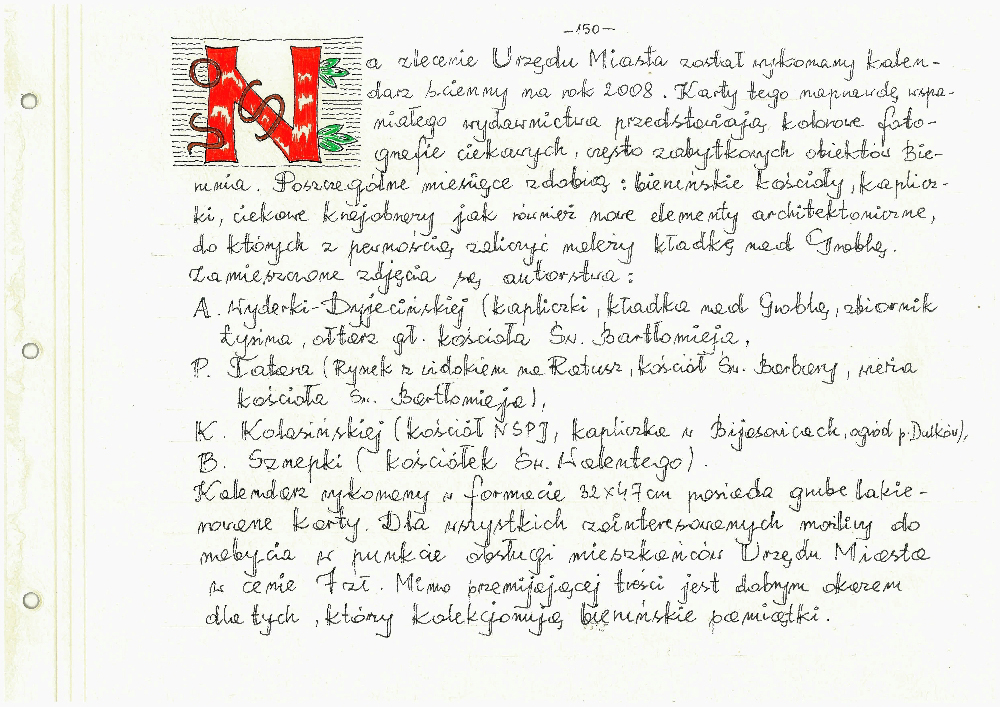 -150-
Na zlecenie Urzędu Miasta został wykonany kalen-
darz ścienny na rok 2008. Karty tego naprawdę wspa-
niałego wydawnictwa przedstawiają kolorowe foto-
grafie ciekawych, często zabytkowych obiektów Bie-
runia. Poszczególne miesiące zdobią: bieruńskie kościoły, kaplicz-
ki, ciekawe krajobrazy jak również nowe elementy architektoniczne,
do których z pewnością zaliczyć należy kładkę nad Groblą.
Zamieszczone zdjęcia są autorstwa:
A. Wyderki-Dyjecińskiej (kapliczki, kładka nad Groblą, zbiornik
Łysina, ołtarz gł. kościoła Św. Bartłomieja,
P. Tatara (Rynek z widokiem na Ratusz, kościół Św. Barbary, wieża
kościoła Św. Bartłomieja),
K. Kolasińskiej (kościół NSPJ, kapliczka w Bijasowicach, ogród p. Dutków),
B. Sznepki (kościółek Św. Walentego).
Kalendarz wykonany w formacie 32x47cm posiada grube lakie-
rowane karty. Dla wszystkich zainteresowanych możliwy do
nabycia w punkcie obsługi mieszkańców Urzędu Miasta
w cenie 7 zł. Mimo przemijającej treści jest dobrym okazem
dla tych, który kolekcjonują bieruńskie pamiątki.